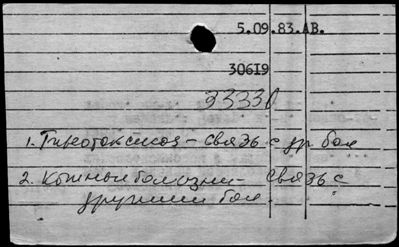 5.09.83.АВ.
30619
33330
1. Тиреотоксикоз – связь с др бол
2. Кожные болезни – связь с
другими бол.